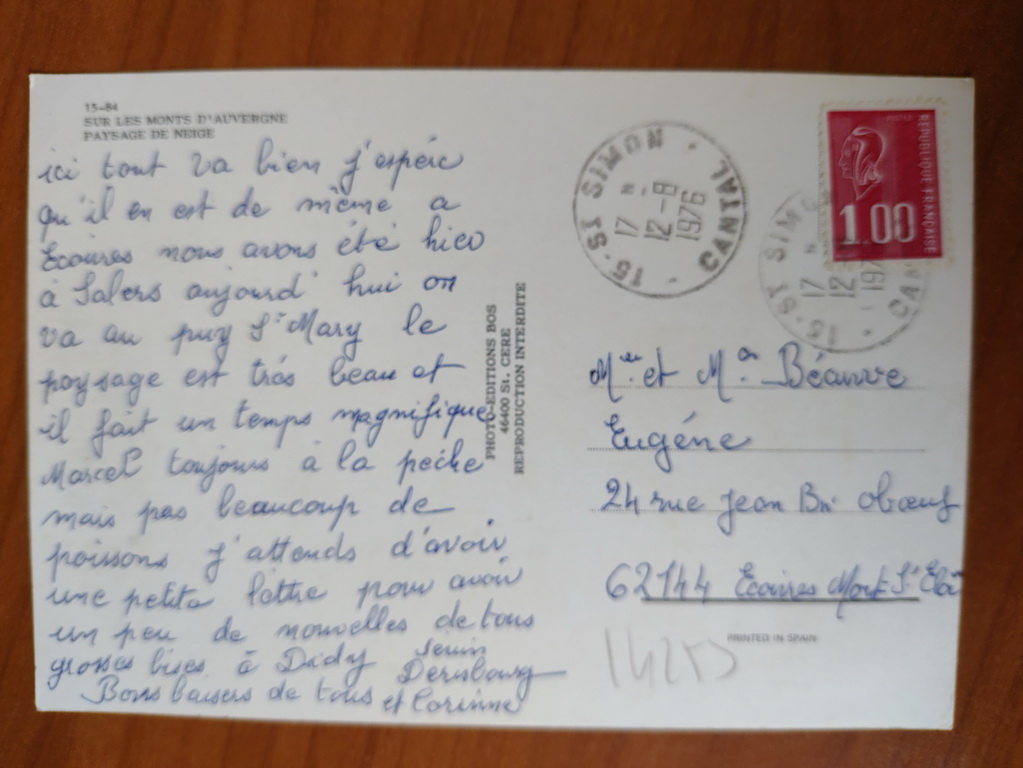 15-84
SUR LES MONTS D'AUVERGNE
PAYSAGE DE NEIGE
ici tout va bien j'espére
qu'il en est de même a
Ecoires nous avons été hier
à Salers aujourd'hui on
va au puy St Mary le
paysage est trés beau et
il fait un temps magnifique
Marcel toujours à la peche
mais pas beaucoup de
poissons j'attends d'avoir
une petite lettre pour avoir
un peu de nouvelles de tous
grosses bises à Didy
Bons baisers de tous et Corinne
PHOTO-EDITIONS BOS
46400 St. CERE
REPRODUCTION INTERDITE
15-ST SIMON
17 H
12-8
1976
CANTAL
REPUBLIQUE FRANÇAISE
POSTES
1.00
15-ST SIMON
17 H
12
197
CAN
Mme et Mr Béauvre
Eugéne
24 rue Jean Bte
62144 Ecoires Mont St Eloi
PRINTED IN SPAIN